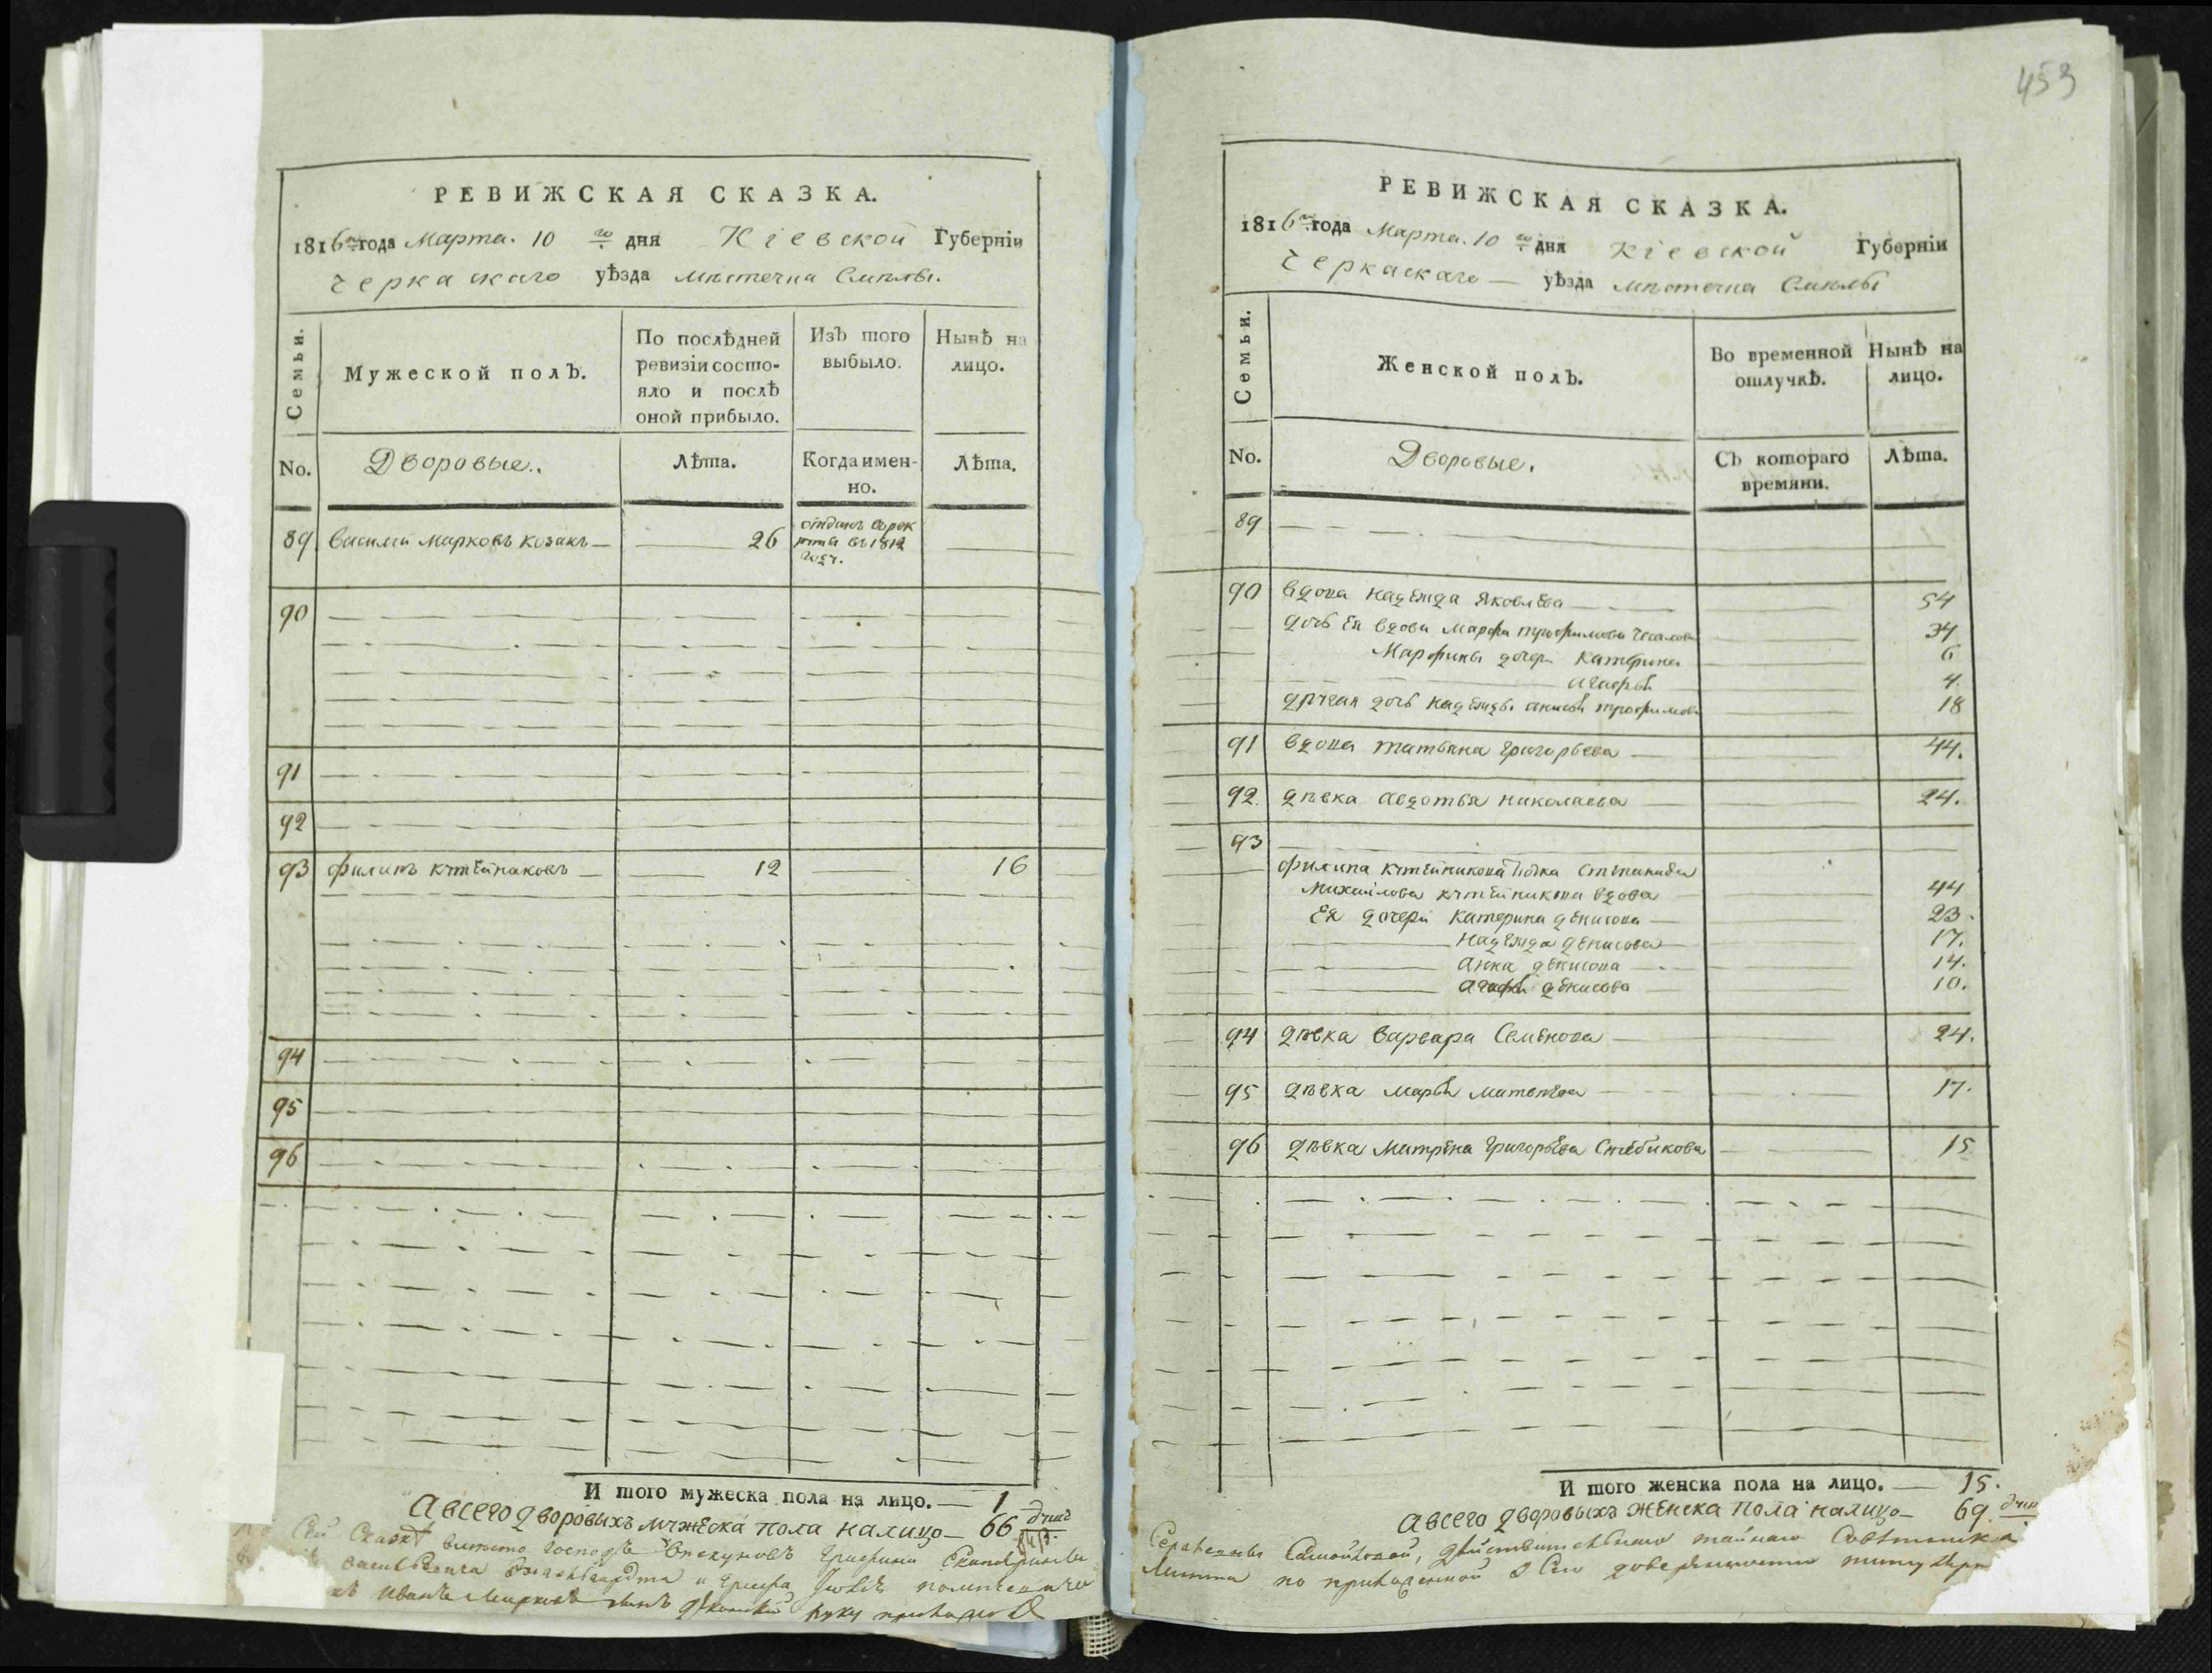 РЕВИЖСКАЯ СКАЗКА.
1816го года Марта. 10 го дня Кіевской Губерніи
Черкаскаго уѣзда мѣстечка Смѣлы.
Семьи.
Мужеской полъ.
По послѣдней ревизіи состо-
яло и послѣ
оной прибыло.
Изъ того
выбыло.
Нынѣ на
лицо.
No.
Дворовые.
Лѣта.
Когда имен-
но.
Лѣта.
89 Василий Марковъ козакъ 26
отданъ в рек
руты въ 1812
году.
90
91
92
93 Филипъ Кутейниковъ 12 16
94
95
96
И того мужеска пола на лицо. — 1
А всего дворовыхъ мужеска пола налицо — 66 душъ
Сей Сказкѣ вместо господъ Опекуновъ Графини Екатерины
Васильевича Энгельгардта и Графа Юлія
Иванъ руку приложилъ
453
РЕВИЖСКАЯ СКАЗКА.
1816го года Марта. 10 го дня Кіевской Губерніи
Черкаскаго уѣзда мѣстечка Смѣлы
Семьи.
Женской полъ.
Во временной
отлучкѣ.
Нынѣ на
лицо.
No.
Дворовые.
Съ котораго
времяни.
Лѣта.
89
90 вдова Надежда Яковлева 54
дочь Ея вдова Марфа Трофимова 34
Марфины дочери Катерина 6
Агафья 4.
другая дочь Надежды Анисья Трофимова 18
91 вдова Татьяна Григорьева 44.
92. дѣвка Авдотья Николаева 24.
93
Филипа Кутейникова тіотка Степанида
Михайлова Кутейникова вдова 44
Ея дочери Катерина Денисова 23.
Надежда Денисова 17.
Анна Денисова 14.
Агафья Денисова 10.
94 дѣвка Варвара Семенова 24.
95 дѣвка Марья Матвѣева 17.
96 дѣвка Матрена Григорьева Стебикова 15
И того женска пола на лицо. — 15.
А всего дворовыхъ женска пола налицо — 69. душъ
Самойловой, дѣйствительнаго тайнаго Совѣтника
Литта по приложенной доверенности